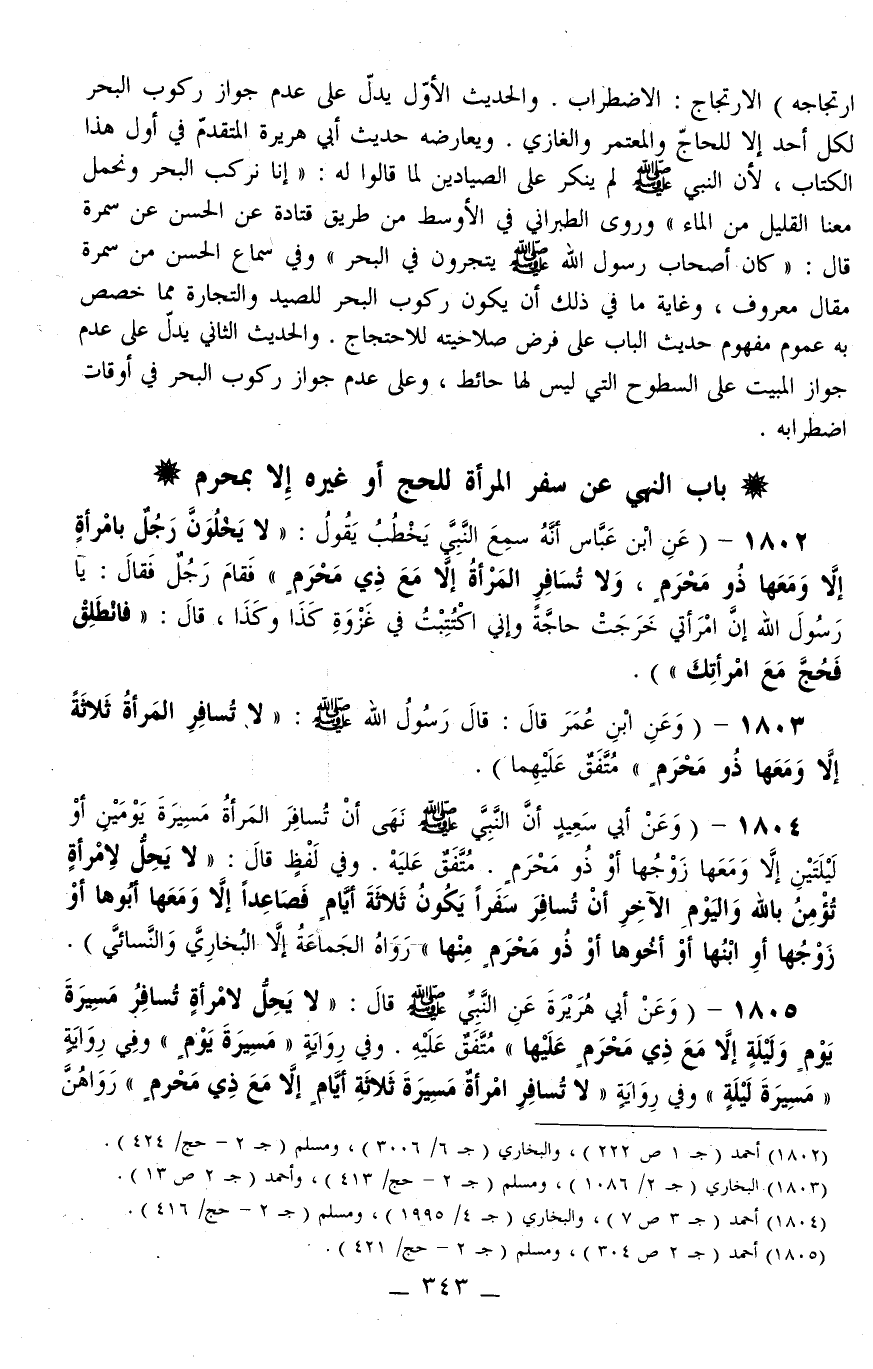 ارتجاجه ) الارتجاج : الاضطراب . والحديث الأوّل يدلّ على عدم جواز ركوب البحر
لكل أحد إلا للحاجّ والمعتمر والغازي . ويعارضه حديث أبي هريرة المتقدمّ في أول هذا
الكتاب ، لأن النبي ﷺ لم ينكر على الصيادين لما قالوا له : « إنا نركب البحر ونحمل
معنا القليل من الماء » وروى الطبراني في الأوسط من طريق قتادة عن الحسن عن سمرة
قال : « كان أصحاب رسول الله ﷺ يتجرون في البحر » وفي سماع الحسن من سمرة
مقال معروف ، وغاية ما في ذلك أن يكون ركوب البحر للصيد والتجارة مما خصص
به عموم مفهوم حديث الباب على فرض صلاحيته للاحتجاج . والحديث الثاني يدلّ على عدم
جواز المبيت على السطوح التي ليس لها حائط ، وعلى عدم جواز ركوب البحر في أوقات
اضطرابه .
باب النهي عن سفر المرأة للحج أو غيره إلا بمحرم
١٨٠٢ – ( عَنِ ابْنِ عَبَّاس أَنَّهُ سمِعَ النَّبِيَّ يَخْطُبُ يَقُولُ : « لا يَخْلُوَنَّ رَجُلٌ بامْرأةٍ
إلَّا وَمَعَها ذُو مَحْرَمٍ ، وَلا تُسَافِرِ المَرْأةُ إلَّا مَعَ ذِي مَحْرَمٍ » فَقامَ رَجُلٌ فَقالَ : يَا
رَسُولَ الله إنَّ امْرَأتي خَرَجَتْ حاجَّةً وإني اكْتُتِبْتُ في غَزْوَةِ كَذَا وكَذَا ، قالَ : « فانْطَلِقْ
فَحُجَّ مَعَ امْرأتِكَ » ) .
١٨٠٣ – ( وَعَنِ ابْنِ عُمَرَ قالَ : قالَ رَسُولُ الله ﷺ : « لا تُسافِرِ المَرأةُ ثَلاثَةً
إلَّا وَمَعَها ذُو مَحْرَمٍ » مُتَّفَقٌ عَلَيْهِما ) .
١٨٠٤ – ( وَعَنْ أبي سَعِيدٍ أنَّ النَّبِيَّ ﷺ نَهَى أنْ تُسافِرَ المَرأةُ مَسِيرَةَ يَوْمَيْنِ أوْ
لَيْلَتَيْنِ إلَّا وَمَعَها زَوْجُها أوْ ذُو مَحْرَمٍ . مُتَّفَقٌ عَلَيْهِ . وفي لَفْظٍ قالَ : « لا يَحِلُّ لامْرأةٍ
تُؤْمِنُ بالله وَاليَوْمِ الآخِرِ أنْ تُسافِرَ سَفَراً يَكُونُ ثَلاثَةَ أيَّامٍ فَصَاعِداً إلَّا وَمَعَها أبُوها أوْ
زَوْجُها أوِ ابْنُها أوْ أخُوها أوْ ذُو مَحْرَمٍ مِنْها » رَوَاهُ الجَماعَةُ إلَّا البُخاريَّ وَالنَّسائيَّ ) .
١٨٠٥ – ( وَعَنْ أبي هُرَيْرَةَ عَنِ النَّبِيِّ ﷺ قالَ : « لا يَحِلُّ لامْرأةٍ تُسافِرُ مَسِيرَةَ
يَوْمٍ وَلَيْلَةٍ إلَّا مَعَ ذِي مَحْرَمٍ عَلَيْها » مُتَّفَقٌ عَلَيْهِ . وفي رِوَايَةٍ « مَسِيرَةَ يَوْمٍ » وفِي رِوايَةٍ
« مَسِيرَةَ لَيْلَةٍ » وفي رِوَايَةٍ « لا تُسافِرِ امْرأةٌ مَسِيرَةَ ثَلاثَةِ أيَّامٍ إلَّا مَعَ ذِي مَحْرمٍ » رَوَاهُنَّ
(١٨٠٢) أحمد ( جـ ١ ص ٢٢٢ ) ، والبخاري ( جـ ٦/ ٣٠٠٦ ) ، ومسلم ( جـ ٢ – حج/ ٤٢٤ ) .
(١٨٠٣) البخاري ( جـ ٢/ ١٠٨٦ ) ، ومسلم ( جـ ٢ – حج/ ٤١٣ ) ، وأحمد ( جـ ٢ ص ١٣ ) .
(١٨٠٤) أحمد ( جـ ٣ ص ٧ ) ، والبخاري ( جـ ٤/ ١٩٩٥ ) ، ومسلم ( جـ ٢ – حج/ ٤١٦ ) .
(١٨٠٥) أحمد ( جـ ٢ ص ٣٠٤ ) ، ومسلم ( جـ ٢ – حج/ ٤٢١ ) .
– ٣٤٣ –